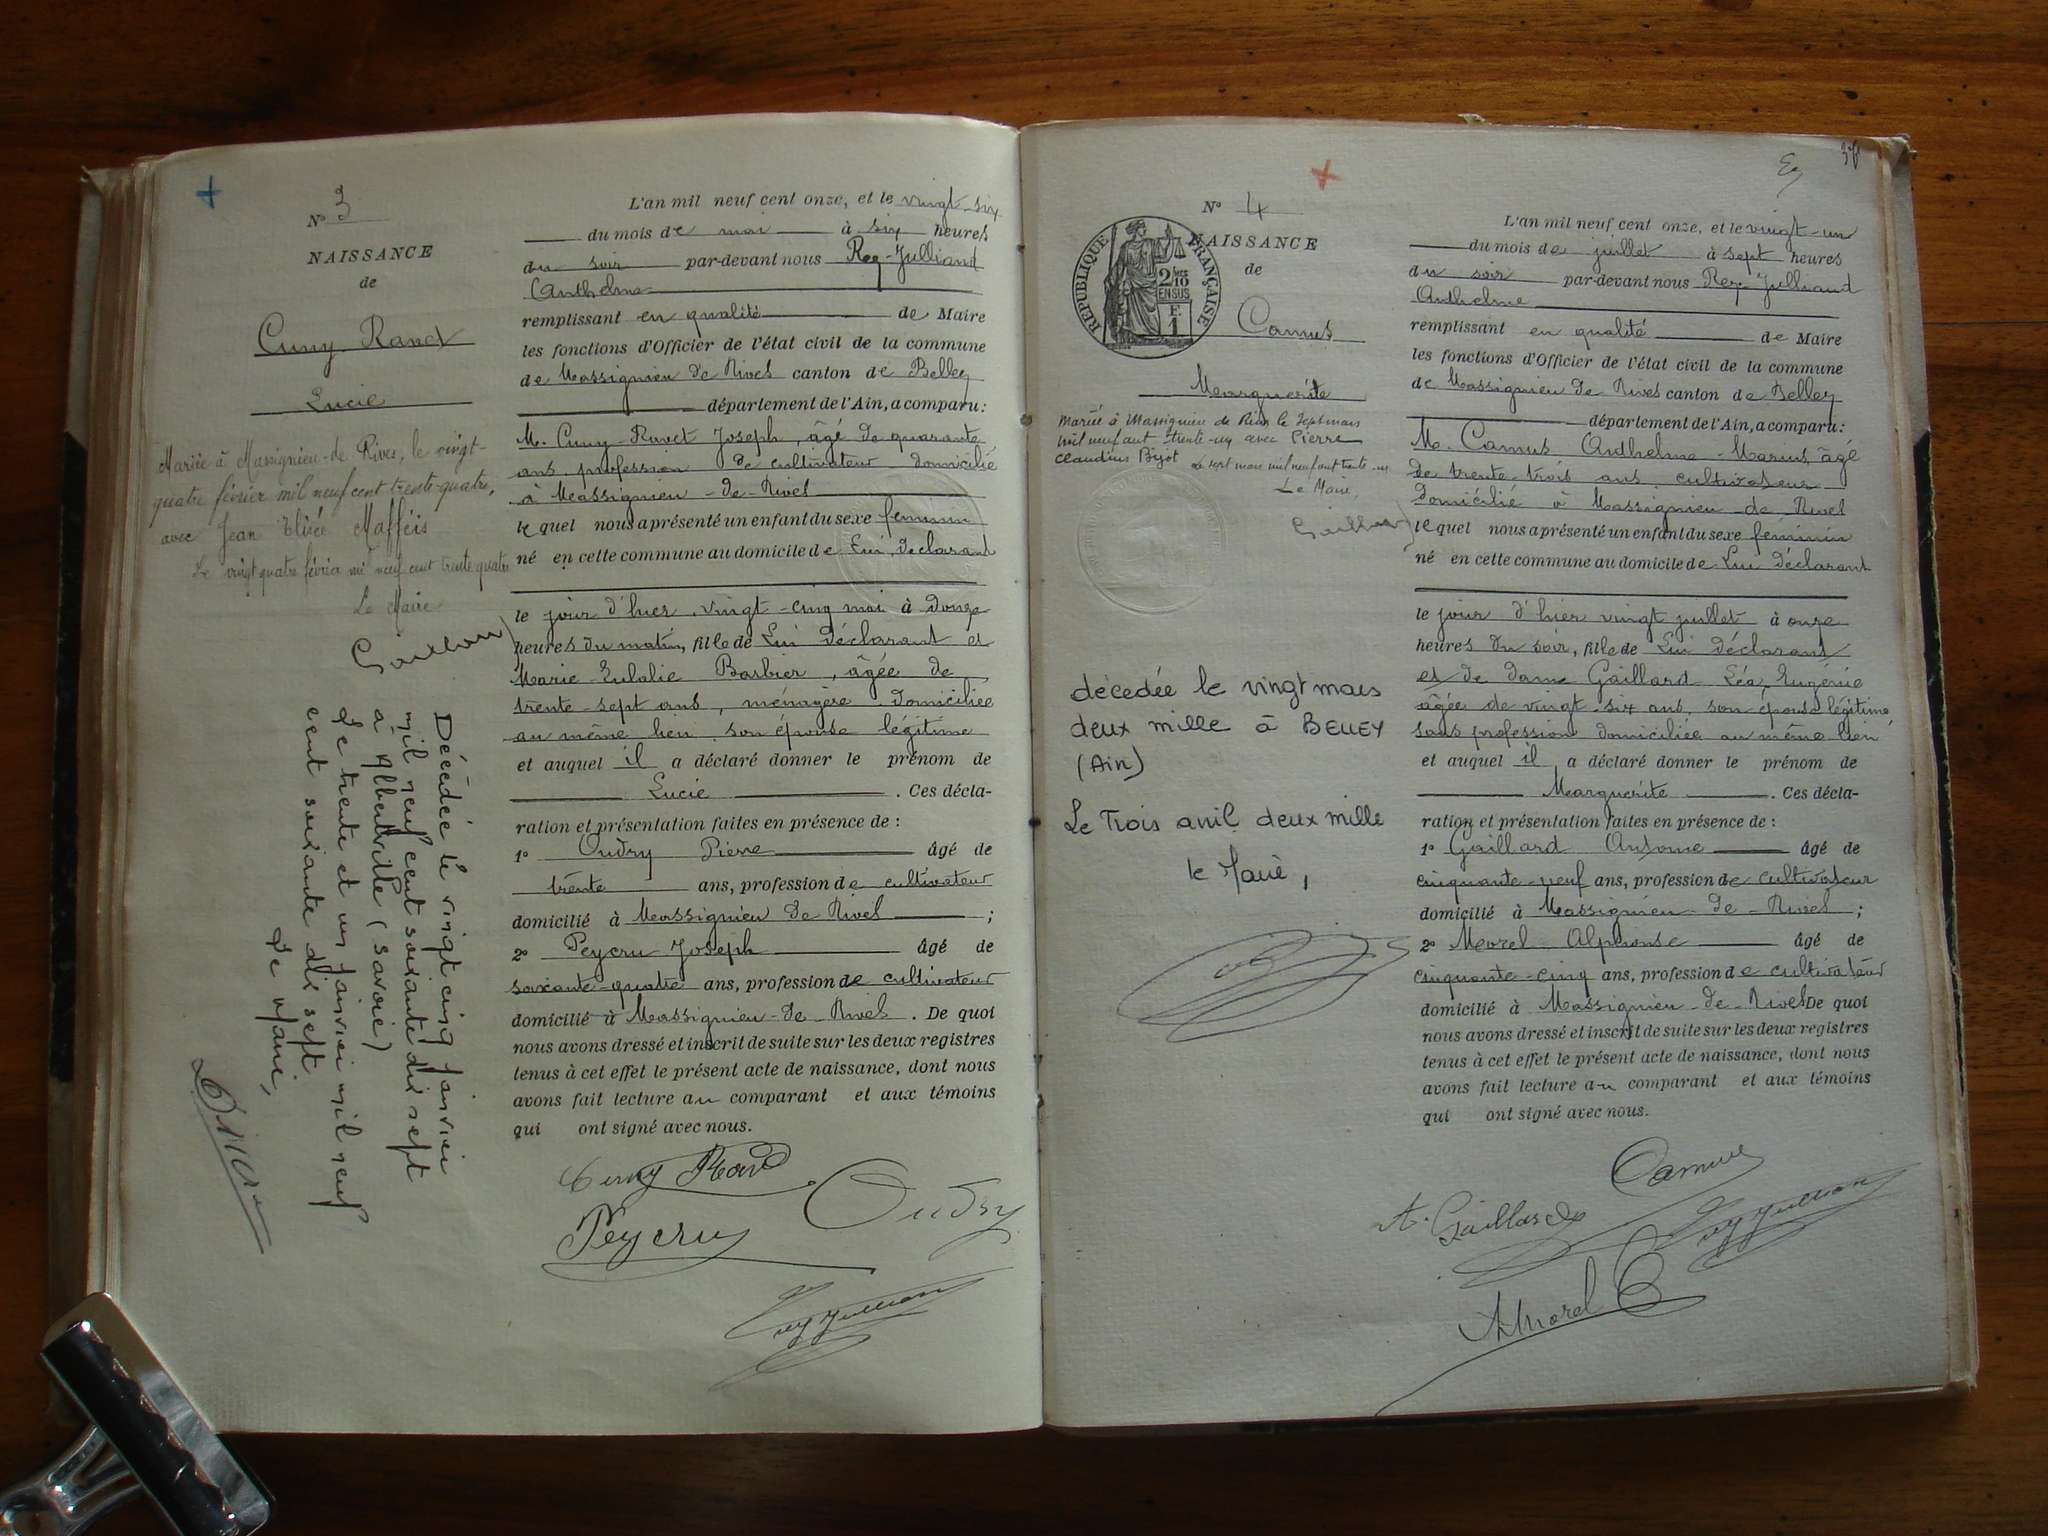 N° 3
NAISSANCE
de
Cuny Ravet
Lucie
Mariée à Massignieu-de-Rives, le vingt-
quatre février mil neuf cent trente-quatre,
avec Jean Elisée Mafféis
Le vingt quatre février mil neuf cent trente quatre
Le Maire
Gaillard
Décédée le vingt cinq janvier
mil neuf cent soixante dix sept
à Albertville (Savoie)
Le trente et un janvier mil neuf
cent soixante dix sept
Le Maire,
L'an mil neuf cent onze, et le vingt-six
du mois de mai à six heures
du soir par-devant nous Rey-Julliand
Anthelme
remplissant en qualité de Maire
les fonctions d'Officier de l'état civil de la commune
de Massignieu de Rives canton de Belley
département de l'Ain, a comparu:
M. Cuny-Ravet Joseph, âgé de quarante
ans profession de cultivateur domicilié
à Massignieu-de-Rives
lequel nous a présenté un enfant du sexe féminin
né en cette commune au domicile de Lui, déclarant
le jour d'hier, vingt-cinq mai à donze
heures du matin, fille de Lui Déclarant et
Marie-Eulalie Barbier, âgée de
trente-sept ans, ménagère domiciliée
au même lieu, son épouse légitime
et auquel il a déclaré donner le prénom de
Lucie . Ces décla-
ration et présentation faites en présence de :
1° Oudry Pierre âgé de
trente ans, profession de cultivateur
domicilié à Massignieu de Rives ;
2° Peycru Joseph âgé de
soixante-quatre ans, profession de cultivateur
domicilié à Massignieu-de-Rives . De quoi
nous avons dressé et inscrit de suite sur les deux registres
tenus à cet effet le présent acte de naissance, dont nous
avons fait lecture au comparant et aux témoins
qui ont signé avec nous.
Cuny Ravet
Oudry
Peycru
Rey Julliand
37
N° 4
NAISSANCE
de
RÉPUBLIQUE FRANÇAISE
2/10
EN SUS
F.
1
Camus
Marguerite
Mariée à Massignieu de Rives le sept mars
mil neuf cent trente-un avec Pierre
Claudius Bijot Le sept mars mil neuf cent trente-un
Le Maire,
Gaillard
décedée le vingt mars
deux mille à BELLEY
(Ain)
Le Trois avril deux mille
le Maire,
L'an mil neuf cent onze, et le vingt-un
du mois de juillet à sept heures
du soir par-devant nous Rey-Julliand
Anthelme
remplissant en qualité de Maire
les fonctions d'Officier de l'état civil de la commune
de Massignieu de Rives canton de Belley
département de l'Ain, a comparu:
M. Camus Anthelme-Marius, âgé
de trente-trois ans, cultivateur
domicilié à Massignieu-de-Rives
lequel nous a présenté un enfant du sexe féminin
né en cette commune au domicile de Lui Déclarant
le jour d'hier vingt juillet à onze
heures du soir, fille de Lui Déclarant
et de dame Gaillard Léa, Eugénie
âgée de vingt-six ans, son épouse légitime
sans profession domiciliée au même lieu
et auquel il a déclaré donner le prénom de
Marguerite . Ces décla-
ration et présentation faites en présence de :
1° Gaillard Antoine âgé de
cinquante-neuf ans, profession de cultivateur
domicilié à Massignieu-de-Rives ;
2° Morel Alphonse âgé de
cinquante-cinq ans, profession de cultivateur
domicilié à Massignieu-de-Rives De quoi
nous avons dressé et inscrit de suite sur les deux registres
tenus à cet effet le présent acte de naissance, dont nous
avons fait lecture au comparant et aux témoins
qui ont signé avec nous.
Camus
A. Gaillard
Rey Julliand
A Morel